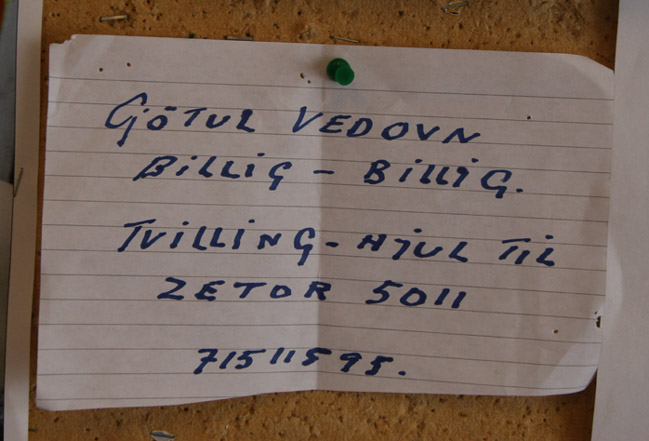 GÖTUL VEDOVN
BILLIG - BILLIG.
TVILLING - HJUL TIL
ZETOR 5011
71511595.